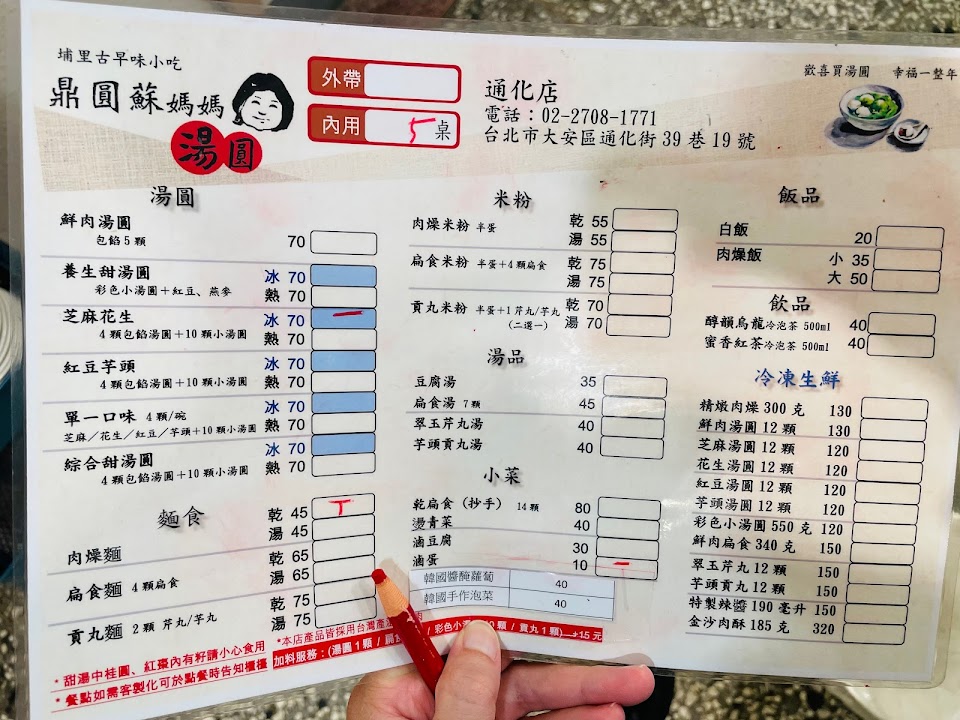 埔里古早味小吃
鼎圓蘇媽媽
湯圓
外帶
內用 5 桌
通化店
電話：02-2708-1771
台北市大安區通化街39巷19號
歡喜買湯圓 幸福一整年
湯圓
鮮肉湯圓
包餡5顆 70
養生甜湯圓 冰 70
彩色小湯圓＋紅豆、燕麥 熱 70
芝麻花生 冰 70
4顆包餡湯圓＋10顆小湯圓 熱 70
紅豆芋頭 冰 70
4顆包餡湯圓＋10顆小湯圓 熱 70
單一口味 4顆/碗 冰 70
芝麻／花生／紅豆／芋頭＋10顆小湯圓 熱 70
綜合甜湯圓 冰 70
4顆包餡湯圓＋10顆小湯圓 熱 70
麵食
乾 45
肉燥麵 湯 45
乾 65
扁食麵 4顆扁食 湯 65
乾 75
貢丸麵 2顆 芹丸/芋丸 湯 75
米粉
肉燥米粉 半蛋 乾 55
湯 55
扁食米粉 半蛋＋4顆扁食 乾 75
湯 75
貢丸米粉 半蛋＋1芹丸/芋丸 乾 70
(二選一) 湯 70
湯品
豆腐湯 35
扁食湯 7顆 45
翠玉芹丸湯 40
芋頭貢丸湯 40
小菜
乾扁食（抄手） 14顆 80
燙青菜 40
滷豆腐 30
滷蛋 10
韓國醬醃蘿蔔 40
韓國手作泡菜 40
飯品
白飯 20
肉燥飯 小 35
大 50
飲品
醇韻烏龍冷泡茶 500ml 40
蜜香紅茶冷泡茶 500ml 40
冷凍生鮮
精燉肉燥 300克 130
鮮肉湯圓 12顆 130
芝麻湯圓 12顆 120
花生湯圓 12顆 120
紅豆湯圓 12顆 120
芋頭湯圓 12顆 120
彩色小湯圓 550克 120
鮮肉扁食 340克 150
翠玉芹丸 12顆 150
芋頭貢丸 12顆 150
特製辣醬 190毫升 150
金沙肉酥 185克 320
*甜湯中桂圓、紅棗內有籽請小心食用
*餐點如需客製化可於點餐時告知櫃檯
*本店產品皆採用台灣產
加料服務：(湯圓1顆 / 彩色小湯圓10顆 / 貢丸1顆) +15元